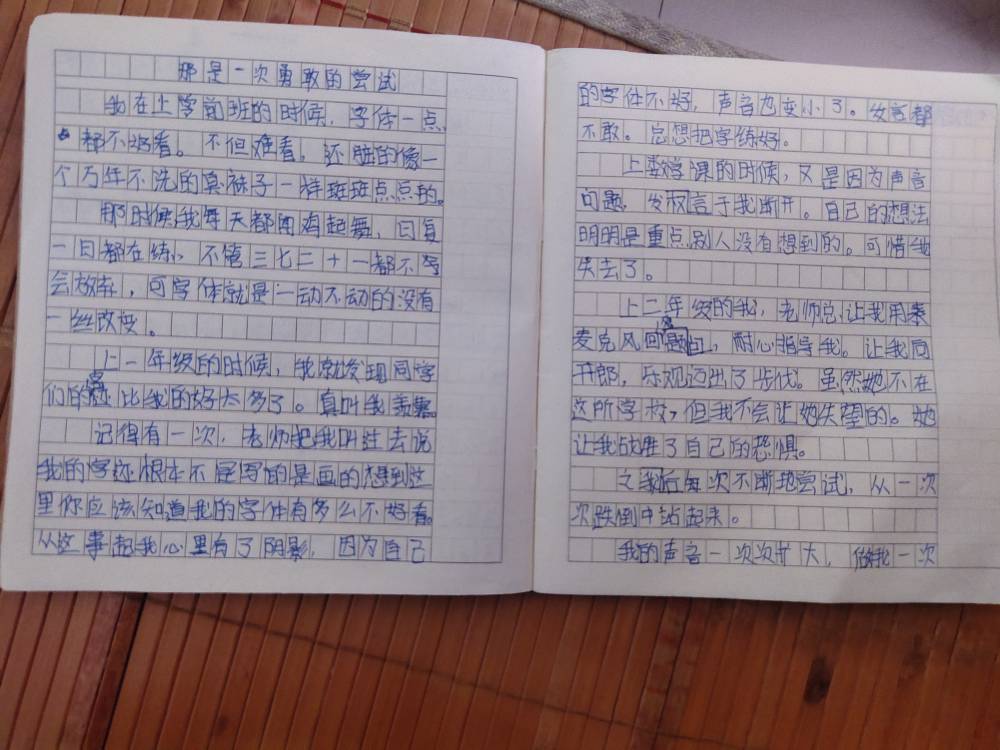 那是一次勇敢的尝试
我在上学前班的时候，字体一点
都不好看。不但难看，还脏的像一
个万年不洗的臭袜子一样斑斑点点的。
那时候我每天都闻鸡起舞，日复
一日都在练，不管三七二十一都不
会放弃，可字体就是一动不动的没有
一丝改变。
上一年级的时候，我就发现同学
们的字迹比我的好太多了。真叫我羡慕。
记得有一次，老师把我叫过去说
我的字迹根本不是写的是画的想到这
里你应该知道我的字体有多么不好看。
从这事起我心里有了阴影，因为自己
的字体不好，声音也变小了。发言都
不敢。总想把字练好。
上数学课的时候，又是因为声音
问题，发言于我断开。自己的想法
明明是重点别人没有想到的。可惜我
失去了。
上二年级的我，老师总让我用
麦克风回答题，耐心指导我。让我向
开郎，乐观迈出了步伐。虽然她不在
这所学校，但我不会让她失望的。她
让我战胜了自己的恐惧。
之后每次不断地尝试，从一次
次跌倒中站起来。
我的声音一次次扩大，做我一次